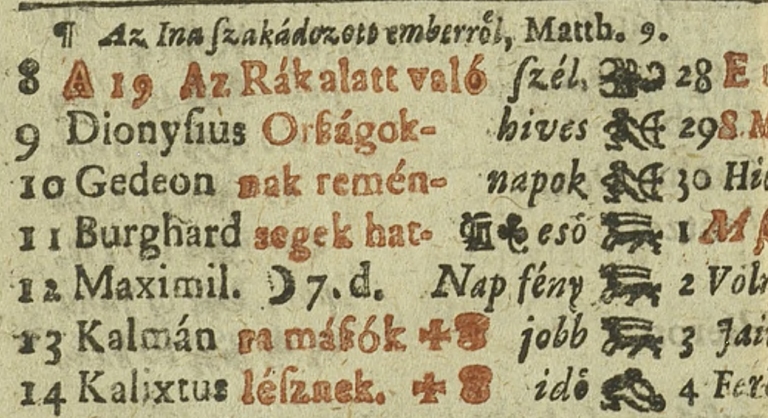 ¶ Az Ina ſzakádozott emberről, Matth. 9.
8 A 19 Az Rák alatt való ſzél. 28 E
9 Dionyſius Orſzágok- hives 29 8 M
10 Gedeon nak remén- napok 30 Hie
11 Burghard segek hat- eső 1 A
12 Maximil. ☽ 7. d. Nap fény 2 Vol
13 Kalmán ra máſsók ✠ jobb 3 Jai
14 Kalixtus léſznek. ✠ idő 4 Fer